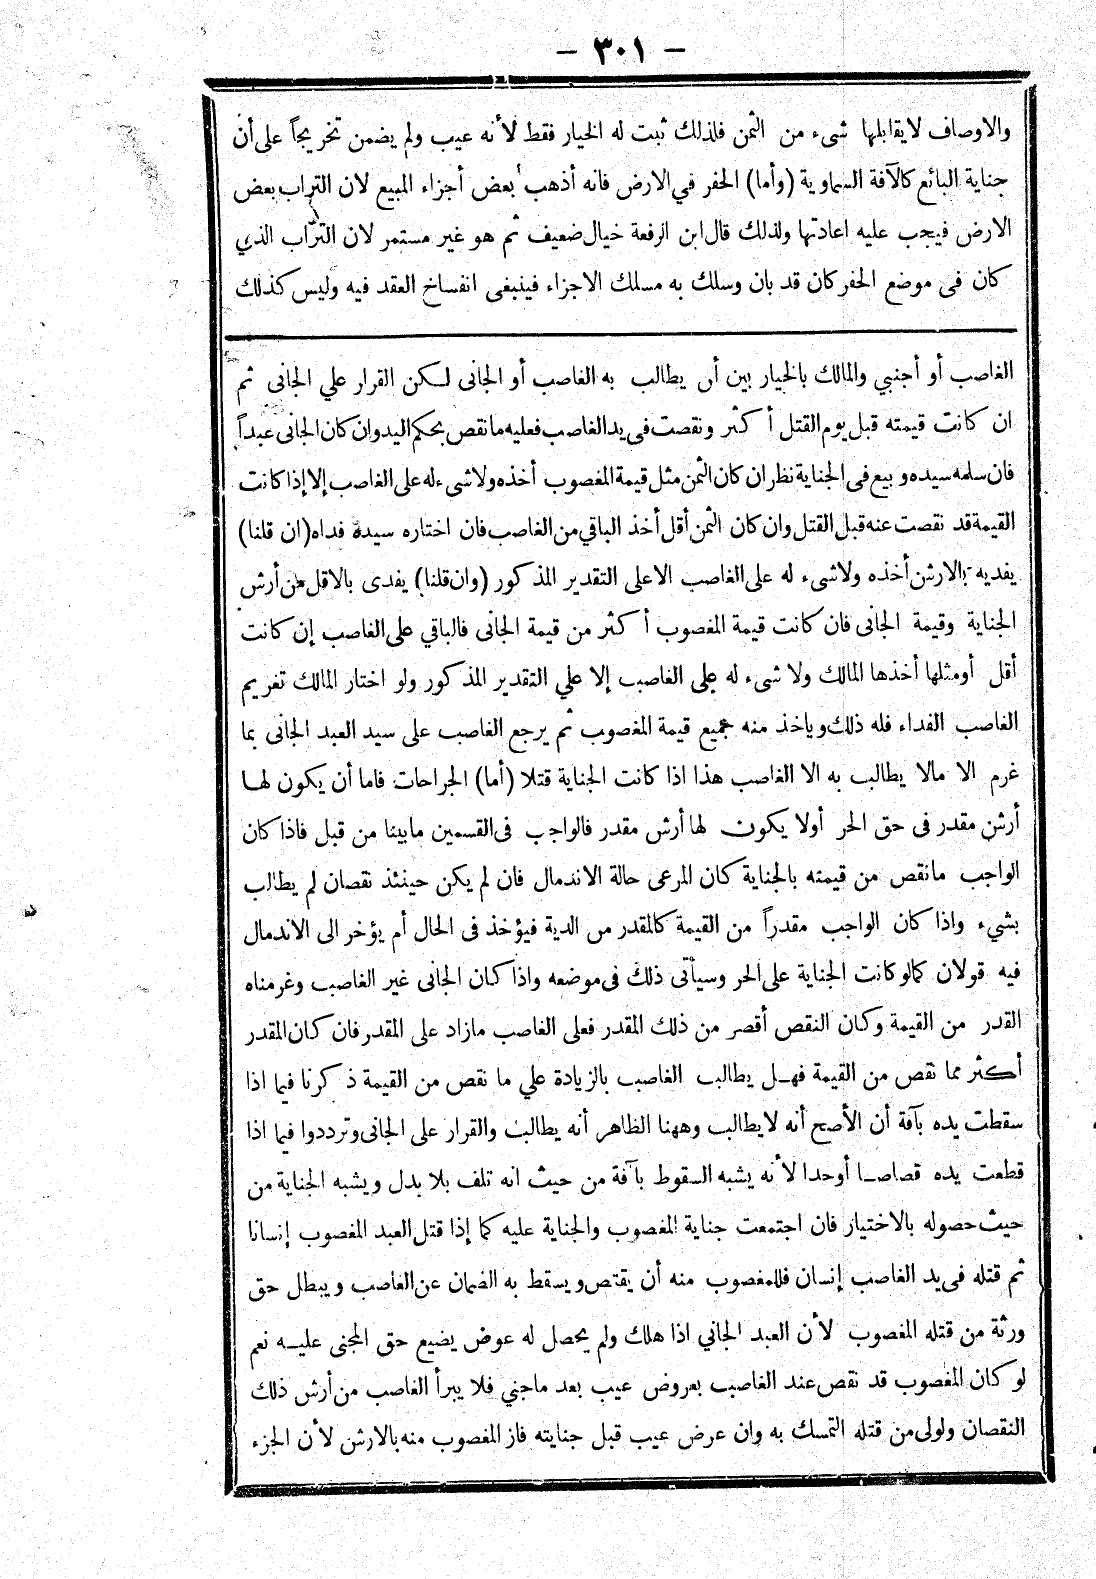 — ٣٠١ —
والاوصاف لايقابلها شىء من الثمن فلذلك ثبت له الخيار فقط لأنه عيب ولم يضمن تخريجاً على أن
جناية البائع كالآفة السماوية (وأما) الحفر في الارض فانه أذهب بعض أجزاء المبيع لان التراب بعض
الارض فيجب عليه اعادتها ولذلك قال ابن الرفعة خيال ضعيف ثم هو غير مستمر لان التراب الذي
كان فى موضع الحفر كان قد بان وسلك به مسلك الاجزاء فينبغى انفساخ العقد فيه وليس كذلك
الغاصب أو أجنبي والمالك بالخيار بين أن يطالب به الغاصب أو الجانى لسكن القرار علي الجانى ثم
ان كانت قيمته قبل يوم القتل أكثر ونقصت فى يد الغاصب فعليه مانقص بحكم اليد وان كان الجانى عبداً
فان سلمه سيده وبيع فى الجناية نظر ان كان الثمن مثل قيمة المغصوب أخذه ولا شىء له على الغاصب إلا إذا كانت
القيمة قد نقصت عنه قبل القتل وان كان الثمن أقل أخذ الباقي من الغاصب فان اختاره سيدة فداه (ان قلنا)
يفديه بالارش أخذه ولاشىء له على الغاصب الاعلى التقدير المذكور (وان قلنا) يفدى بالاقل من أرش
الجناية وقيمة الجانى فان كانت قيمة المغصوب أكثر من قيمة الجانى فالباقي على الغاصب إن كانت
أقل أومثلها أخذها المالك ولا شىء له على الغاصب إلا علي التقدير المذكور ولو اختار المالك تغريم
الغاصب الفداء فله ذلك وياخذ منه جميع قيمة المغصوب ثم يرجع الغاصب على سيد العبد الجانى بما
غرم الا مالا يطالب به الا الغاصب هذا اذا كانت الجناية قتلا (أما) الجراحات فاما أن يكون لها
أرش مقدر فى حق الحر أولا يكون لها أرش مقدر فالواجب فى القسمين مابينا من قبل فاذا كان
الواجب مانقص من قيمته بالجناية كان المرعى حالة الاندمال فان لم يكن حينئذ نقصان لم يطالب
بشيء واذا كان الواجب مقدراً من القيمة كالمقدر من الدية فيؤخذ فى الحال أم يؤخر الى الاندمال
فيه قولان كمالو كانت الجناية على الحر وسيأتى ذلك فى موضعه واذا كان الجانى غير الغاصب وغرمناه
القدر من القيمة وكان النقص أقصر من ذلك المقدر فعلى الغاصب مازاد على المقدر فان كان المقدر
أكثر مما نقص من القيمة فهل يطالب الغاصب بالزيادة علي ما نقص من القيمة ذكرنا فيما اذا
سقطت يده بآفة أن الأصح أنه لايطالب وههنا الظاهر أنه يطالب والقرار على الجانى وترددوا فيما اذا
قطعت يده قصاصا أوحدا لأنه يشبه السقوط بآفة من حيث انه تلف بلا بدل ويشبه الجناية من
حيث حصوله بالاختيار فان اجتمعت جناية المغصوب والجناية عليه كما إذا قتل العبد المغصوب إنسانا
ثم قتله فى يد الغاصب إنسان فللمغصوب منه أن يقتص ويسقط به الضمان عن الغاصب ويبطل حق
ورثة من قتله المغصوب لأن العبد الجاني اذا هلك ولم يحصل له عوض يضيع حق المجنى عليه نعم
لو كان المغصوب قد نقص عند الغاصب بعروض عيب بعد ماجني فلا يبرأ الغاصب من أرش ذلك
النقصان ولولى من قتله التمسك به وإن عرض عيب قبل جنايته فاز المغصوب منه بالارش لأن الجزء